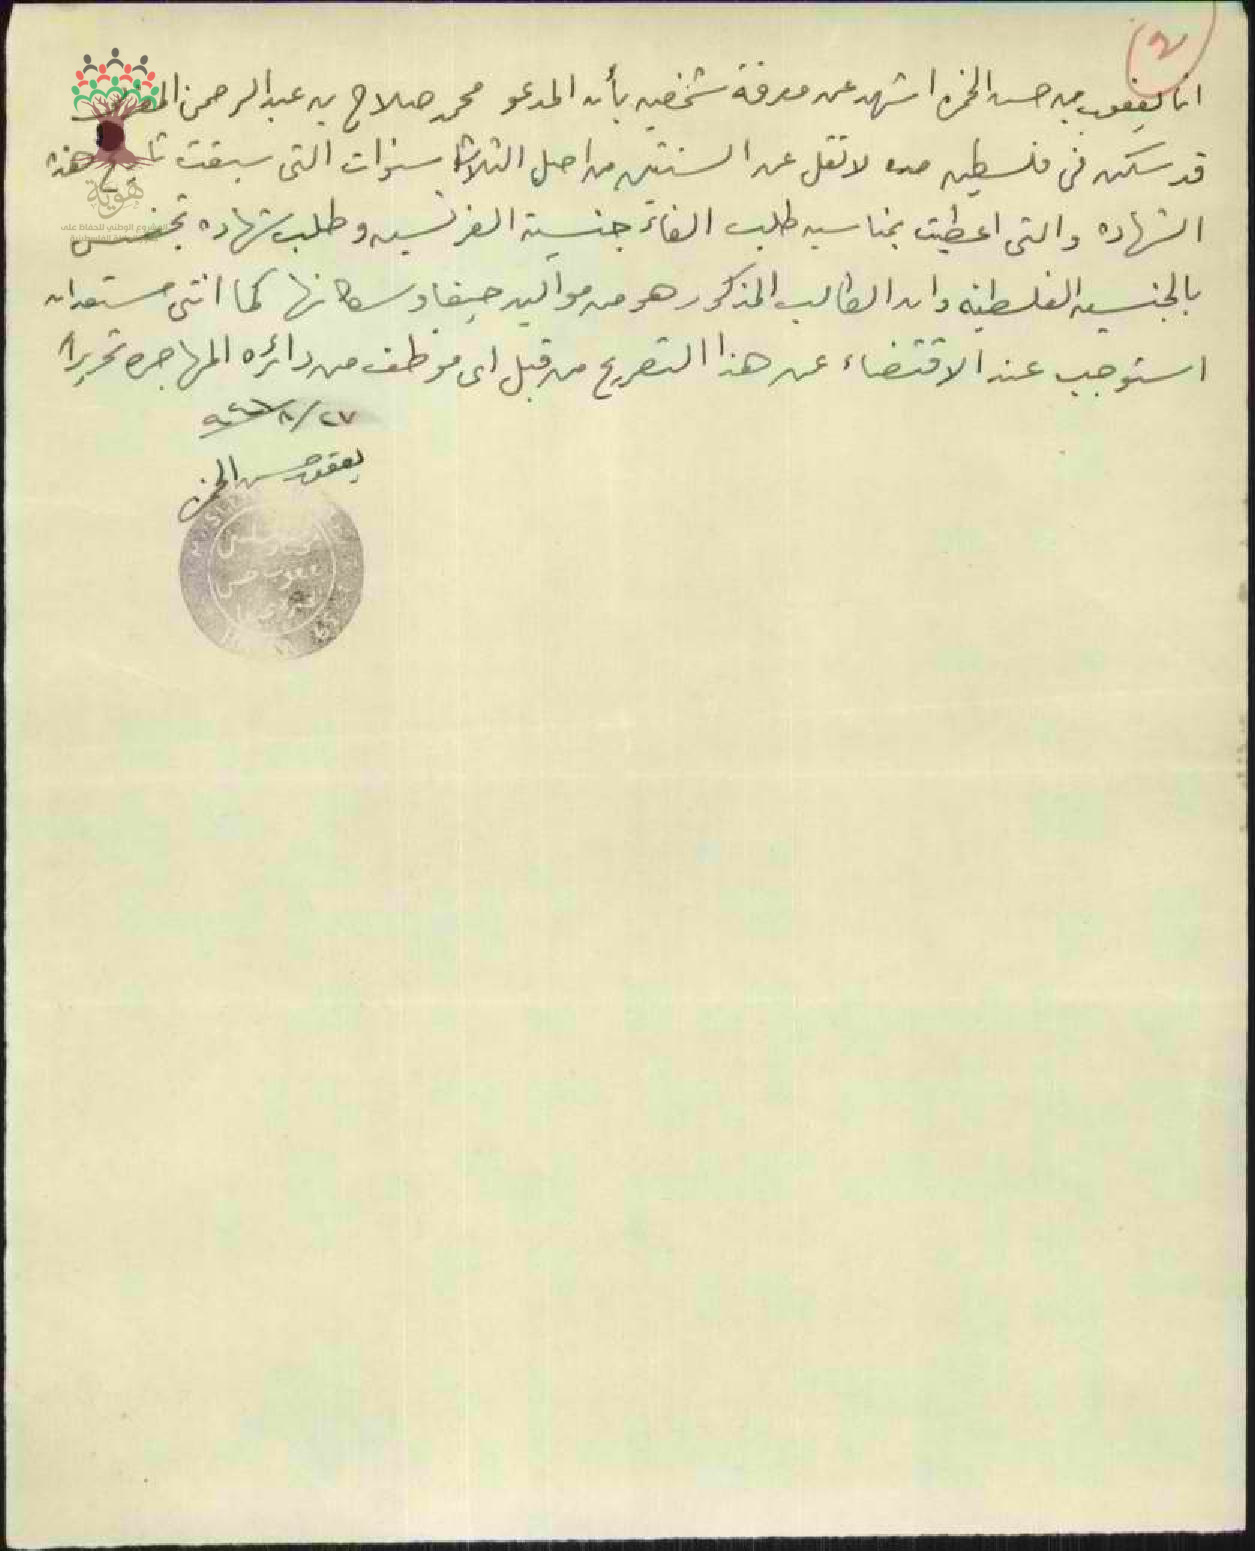 2
انا يعقوب بن حسن الخمره اشهد عن معرفة شخصيه بأن المدعو محمد صلاح بن عبد الرحمن
قد سكن في فلسطين مده لا تقل عن السنتين من اصل الثلاث سنوات التي سبقت تاريخ هذه
الشهاده والتي اعطيت بمناسبه طلب الغائه جنسية الفرنسيه وطلب شهاده تجنس
بالجنسيه الفلسطينه وان الطالب المذكور هو من مواليد حيفا وسكانها كما انني مستعد ان
استوجب عند الاقتضاء عن هذا التصريح من قبل اي موظف من دائره المهاجره تحريراً
٢٧/٨/
يعقوب حسن الخمره
يعقوب حسن
هوية
المشروع الوطني للحفاظ على